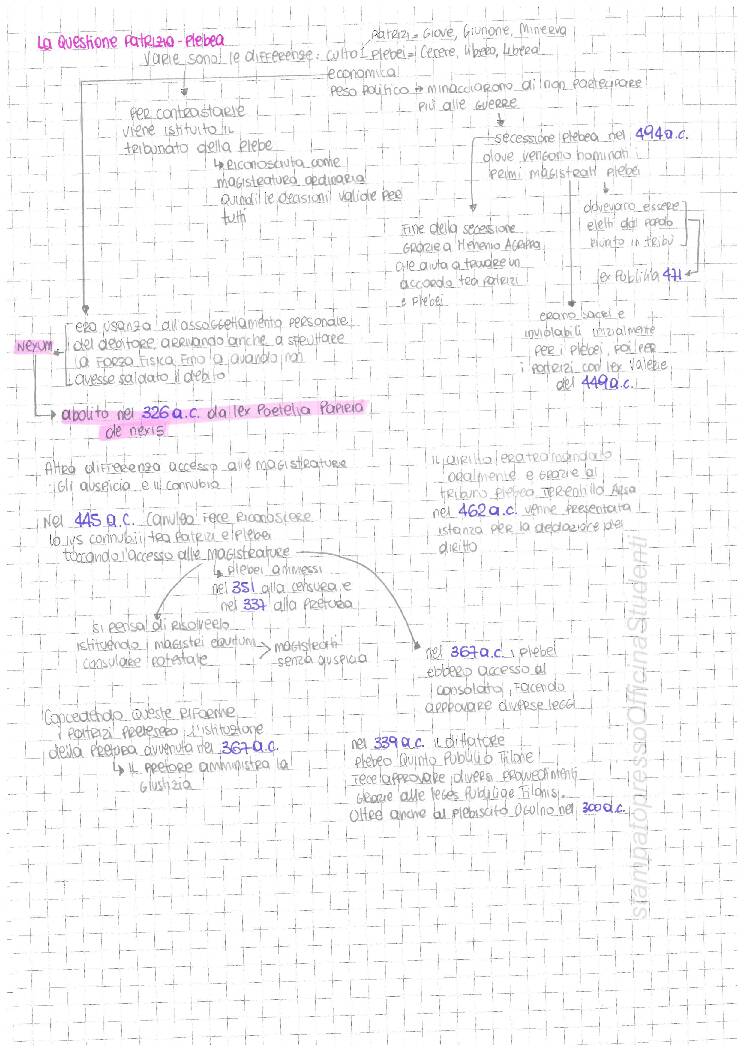 La Questione Patrizio-Plebea
Varie sono le differenze: culto
Patrizi = Giove, Giunone, Minerva
Plebei = Cerere, Libero, Libera
economica
peso politico → minacciarono di non partecipare
più alle guerre
per contrastarle
viene istituito il
tribunato della plebe
↳ riconosciuta come
magistratura ordinaria
quindi le decisioni valide per
tutti
secessione plebea nel 494 a.c.
dove vengono nominati i
primi magistrati plebei
dovevano essere
eletti dal popolo
riunito in tribù
lex Publilia 471
Fine della secessione
grazie a Menenio Agrippa
che aiuta a trovare un
accordo tra patrizi
e plebei
erano sacri e
inviolabili inizialmente
per i plebei, poi per
i patrizi con lex Valerie
del 449 a.c.
nexum
era usanza all'assoggettamento personale
del debitore arrivando anche a sfruttare
la forza fisica fino a quando non
avesse saldato il debito
abolito nel 326 a.c. da lex Poetelia Papiria
de nexis
Altra differenza accesso alle magistrature
gli auspicia e il connubia
Il diritto era tramandato
oralmente e grazie al
tribuno plebeo Terentillo Arsa
nel 462 a.c. venne presentata
istanza per la
diritto
Nel 445 a.c. Canuleo fece riconoscere
lo ius connubii tra patrizi e plebei
toccando l'accesso alle magistrature
↳ plebei ammessi
nel 351 alla censura e
nel 337 alla pretura
si pensa di risolverlo
istituendo i magistri
consulare potestate
magistrati
senza auspicia
nel 367 a.c. i plebei
ebbero accesso al
consolato, facendo
approvare diverse leggi
Concedendo queste riforme
i patrizi pretesero l'istituzione
della pretura avvenuta nel 367 a.c.
↳ il pretore amministra la
giustizia
nel 339 a.c. il dittatore
plebeo Quinto Publilio Filone
fece approvare diversi provvedimenti
grazie alle leges Publiliae Filonis.
Oltre anche al plebiscito Ogulno nel 300 a.c.
stampatopressoOfficinaStudenti